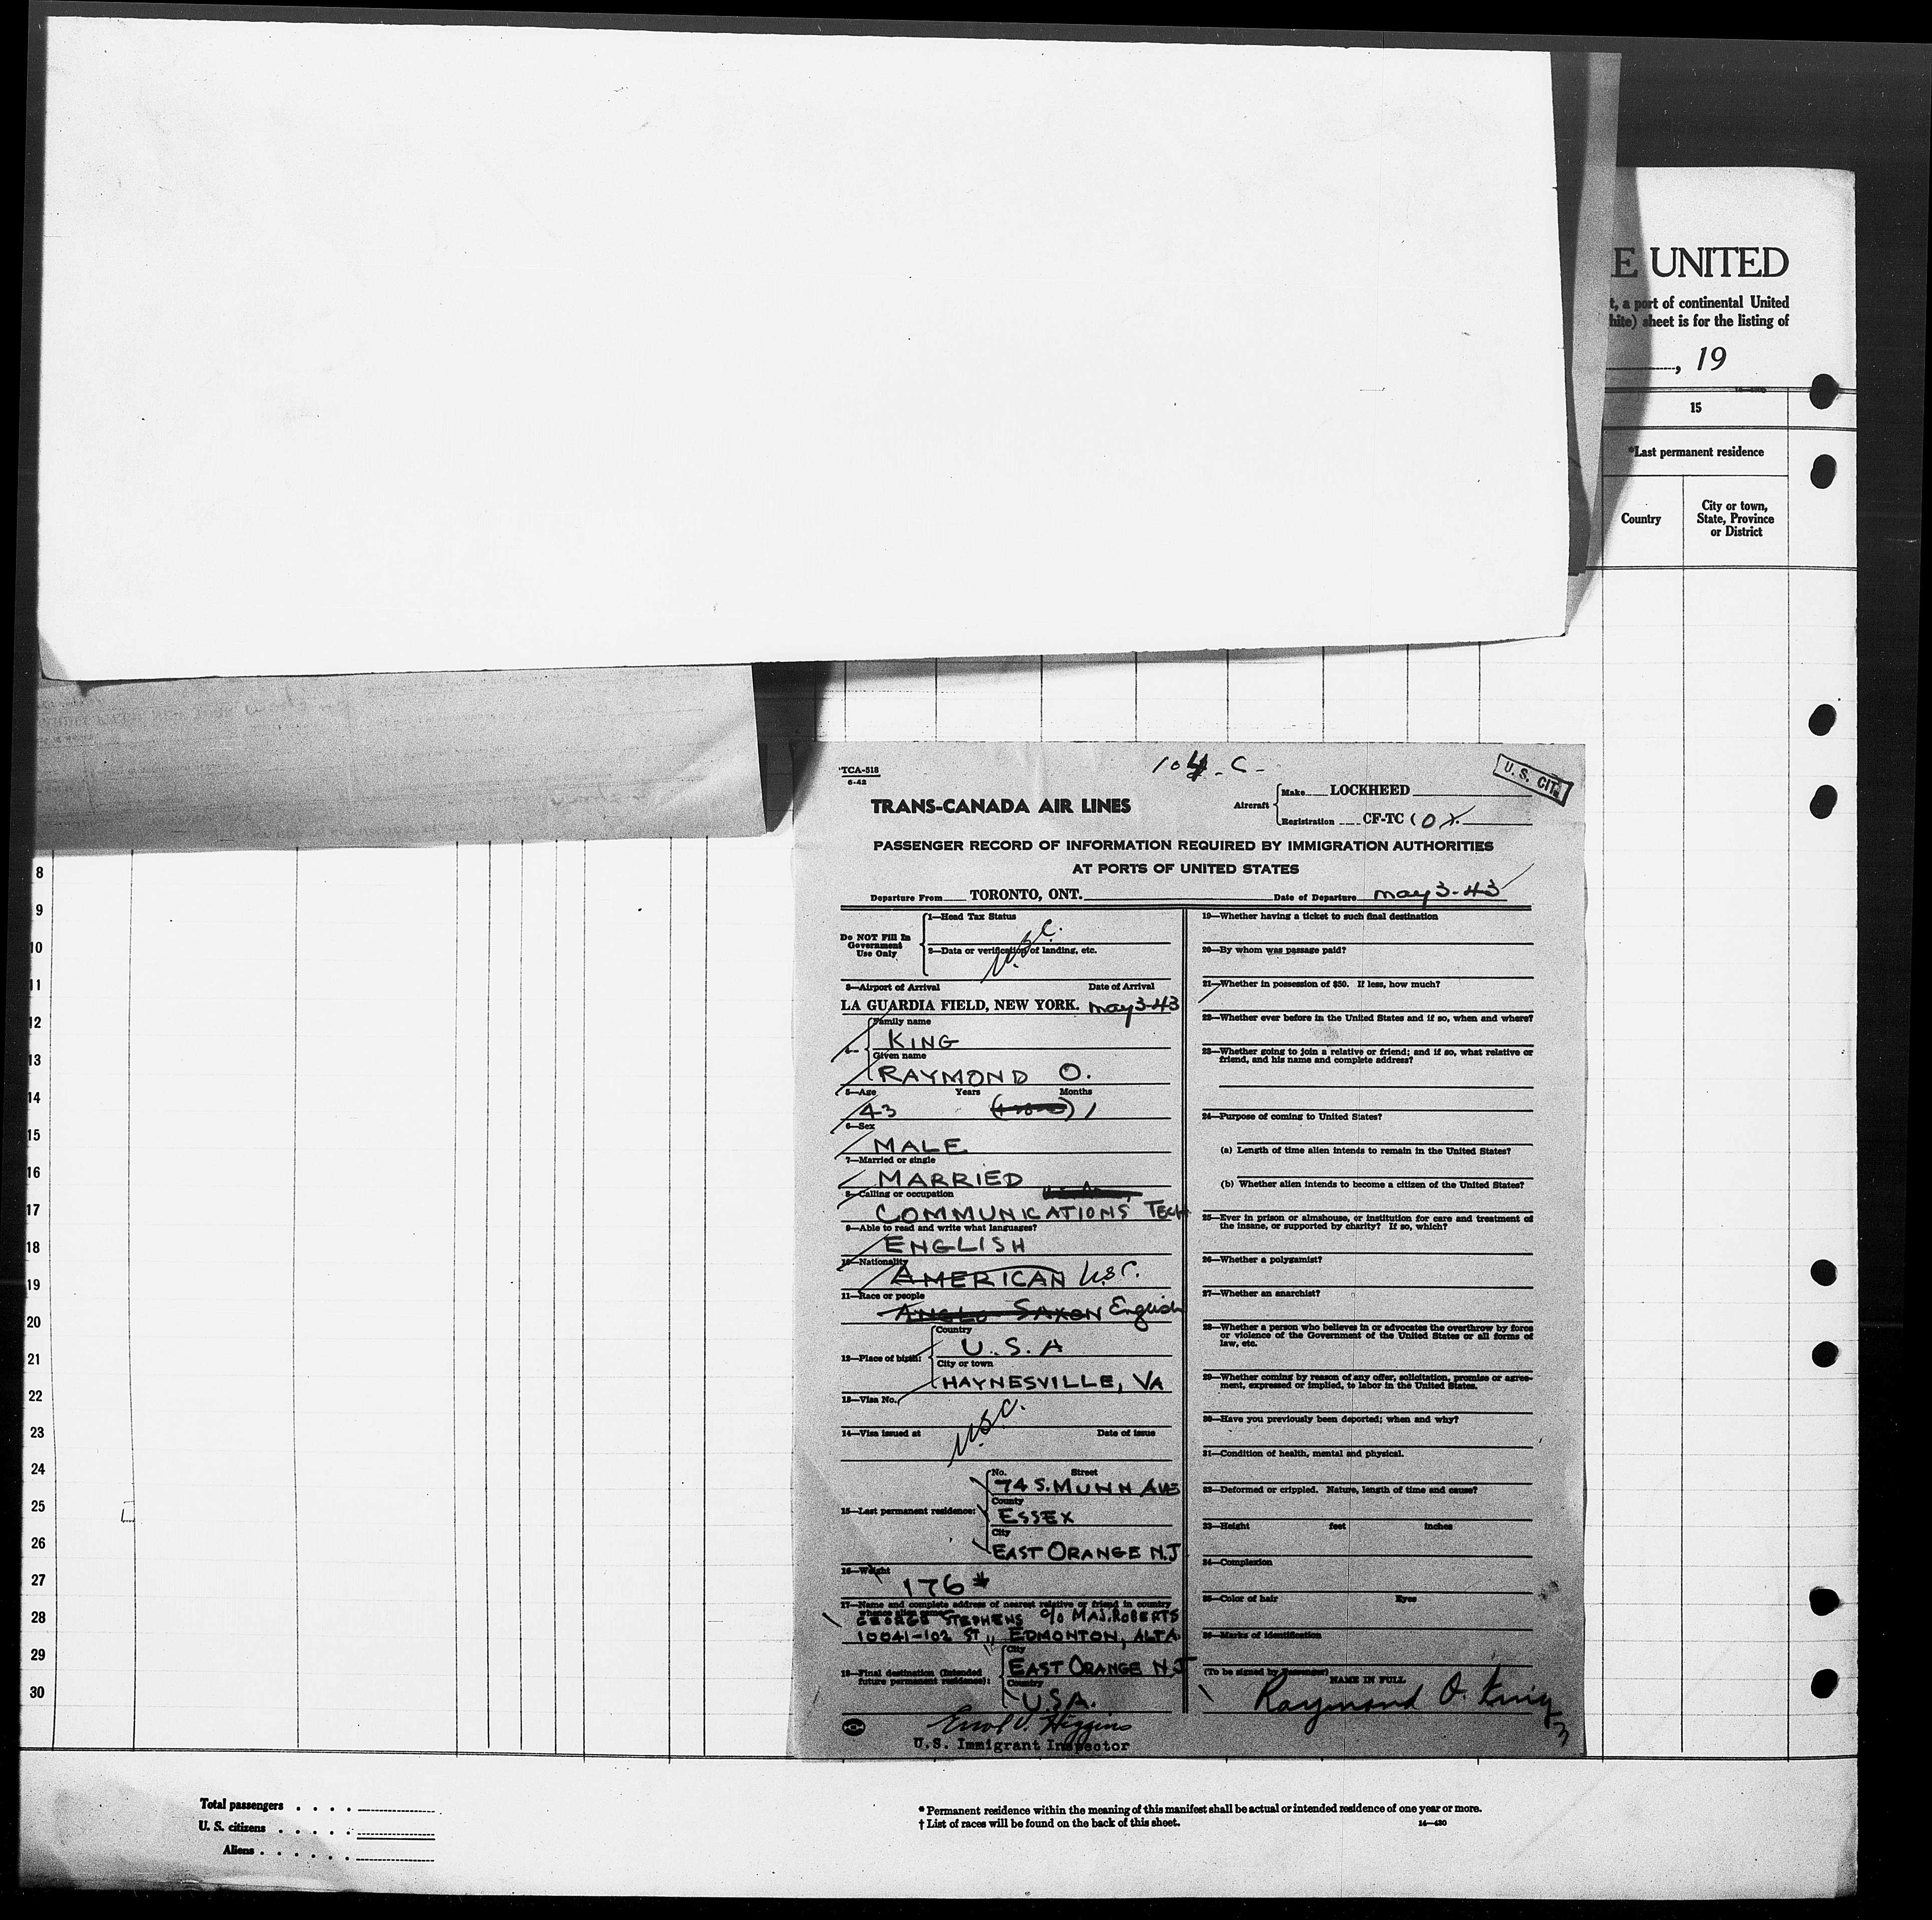 E UNITED
t, a port of continental United
hite) sheet is for the listing of
, 19
15
*Last permanent residence
Country
City or town, State, Province or District
104-C-
U. S. CIT.
TCA-518
6-42
TRANS-CANADA AIR LINES
Aircraft
Make LOCKHEED
Registration CF-TC
PASSENGER RECORD OF INFORMATION REQUIRED BY IMMIGRATION AUTHORITIES
AT PORTS OF UNITED STATES
Departure From TORONTO, ONT. Date of Departure May 3-43
Do NOT Fill In Government Use Only
1—Head Tax Status
2—Data or verification of landing, etc.
U.S.C.
3—Airport of Arrival Date of Arrival
LA GUARDIA FIELD, NEW YORK. May 3-43
4—
Family name
KING
Given name
RAYMOND O.
5—Age Years Months
43 1
6—Sex
MALE
7—Married or single
MARRIED
8—Calling or occupation
COMMUNICATIONS TECH
9—Able to read and write what languages?
ENGLISH
10—Nationality
AMERICAN USC.
11—Race or people
ANGLO SAXON English
12—Place of birth:
Country
U.S.A
City or town
HAYNESVILLE, VA
13—Visa No.
USC.
14—Visa issued at Date of issue
15—Last permanent residence:
No. Street
74 S. MUNN AVE
County
ESSEX
City
EAST ORANGE N.J
16—Weight
176 #
17—Name and complete address of nearest relative or friend in country
whence alien came
GEORGE STEPHENS c/o MAJ. ROBERTS
10041-102 ST., EDMONTON, ALTA.
18—Final destination (Intended future permanent residence):
City
EAST ORANGE N.J
Country
USA.
Errol V. Higgins
U.S. Immigrant Inspector
19—Whether having a ticket to such final destination
20—By whom was passage paid?
21—Whether in possession of $50. If less, how much?
22—Whether ever before in the United States and if so, when and where?
23—Whether going to join a relative or friend; and if so, what relative or
friend, and his name and complete address?
24—Purpose of coming to United States?
(a) Length of time alien intends to remain in the United States?
(b) Whether alien intends to become a citizen of the United States?
25—Ever in prison or almshouse, or institution for care and treatment of
the insane, or supported by charity? If so, which?
26—Whether a polygamist?
27—Whether an anarchist?
28—Whether a person who believes in or advocates the overthrow by force
or violence of the Government of the United States or all forms of
law, etc.
29—Whether coming by reason of any offer, solicitation, promise or agree-
ment, expressed or implied, to labor in the United States.
30—Have you previously been deported; when and why?
31—Condition of health, mental and physical.
32—Deformed or crippled. Nature, length of time and cause?
33—Height feet inches
34—Complexion
35—Color of hair Eyes
36—Marks of identification
(To be signed by Passenger)
NAME IN FULL
Raymond O. King
3
8
9
10
11
12
13
14
15
16
17
18
19
20
21
22
23
24
25
26
27
28
29
30
Total passengers . . . .
U. S. citizens . . . . .
Aliens . . . . . .
* Permanent residence within the meaning of this manifest shall be actual or intended residence of one year or more.
† List of races will be found on the back of this sheet.
14—430